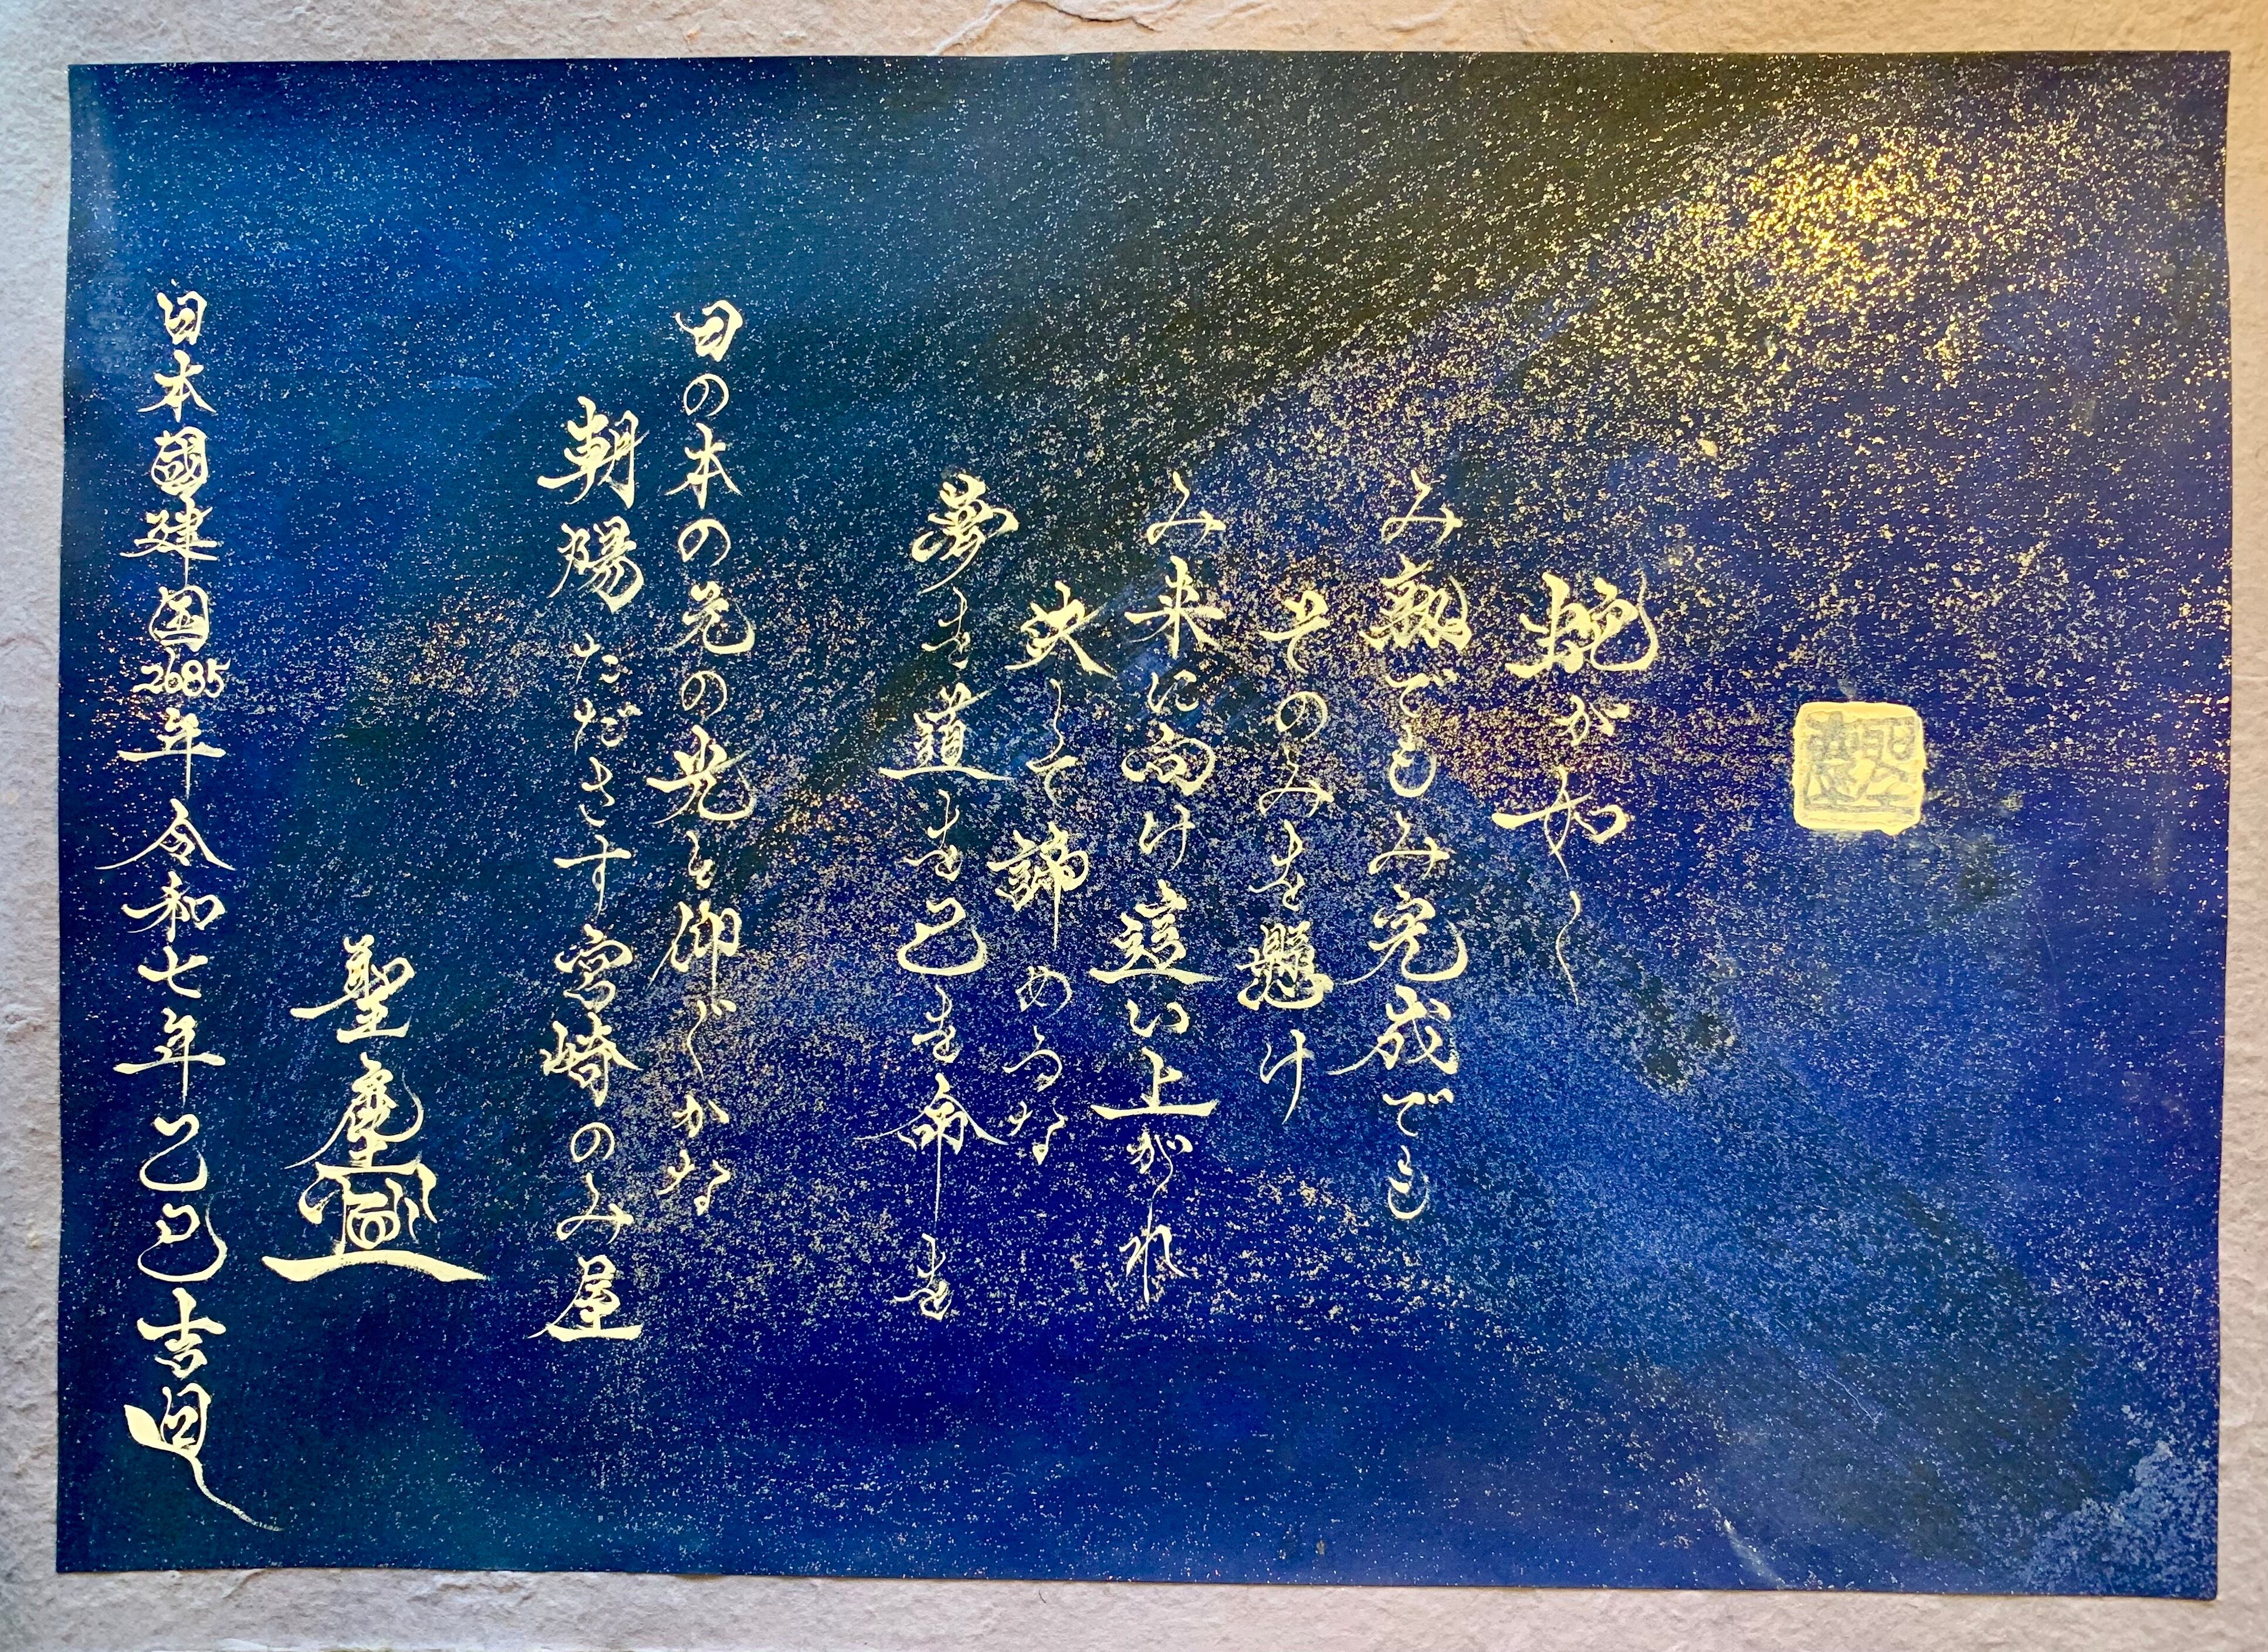 蛇が如く
み熟でもみ完成でも
そのみを懸け
み来に向け這い上がれ
決して諦めるな
夢を道を己を命を
日の本の元の光を仰ぐかな
朝陽たださす宮崎のみ屋
聖塵
日本國建国2685年令和七年乙巳吉日